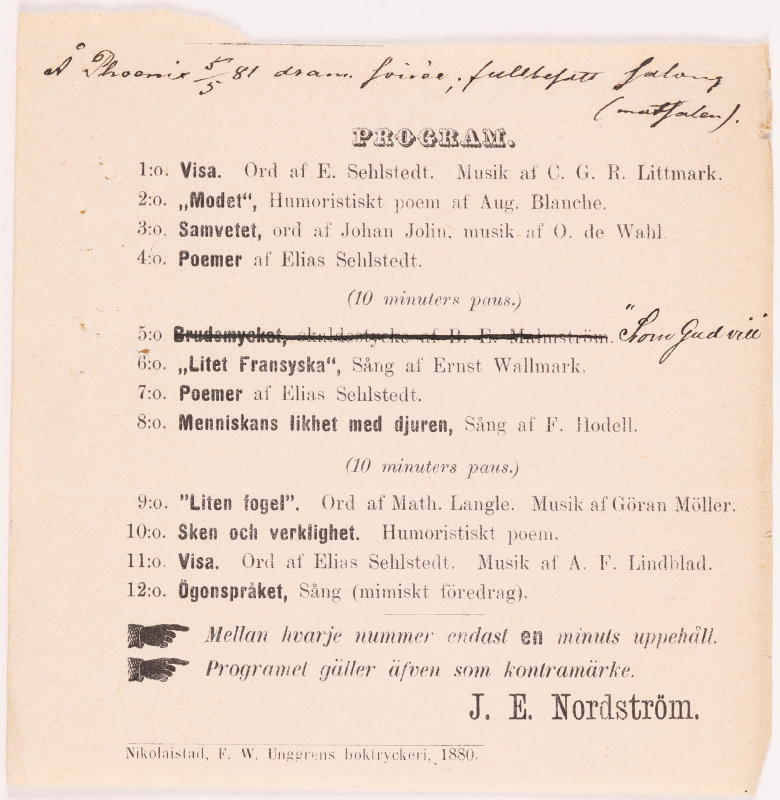 Å Phoenix 5/5 81 dram. soirée; fullbesatt salong
(matsalen).
PROGRAM.
1:o. Visa. Ord af E. Sehlstedt. Musik af C. G. R. Littmark.
2:o. „Modet“, Humoristiskt poem af Aug. Blanche.
3:o. Samvetet, ord af Johan Jolin, musik af O. de Wahl.
4:o. Poemer af Elias Sehlstedt.
(10 minuters paus.)
5:o Brudsmycket, skaldestycke af B. E. Malmström. "Som Gud vill"
6:o. „Litet Fransyska“, Sång af Ernst Wallmark.
7:o. Poemer af Elias Sehlstedt.
8:o. Menniskans likhet med djuren, Sång af F. Hodell.
(10 minuters paus.)
9:o. "Liten fogel". Ord af Math. Langle. Musik af Göran Möller.
10:o. Sken och verklighet. Humoristiskt poem.
11:o. Visa. Ord af Elias Sehlstedt. Musik af A. F. Lindblad.
12:o. Ögonspråket, Sång (mimiskt föredrag).
Mellan hvarje nummer endast en minuts uppehåll.
Programet gäller äfven som kontramärke.
J. E. Nordström.
Nikolaistad, F. W. Unggrens boktryckeri, 1880.